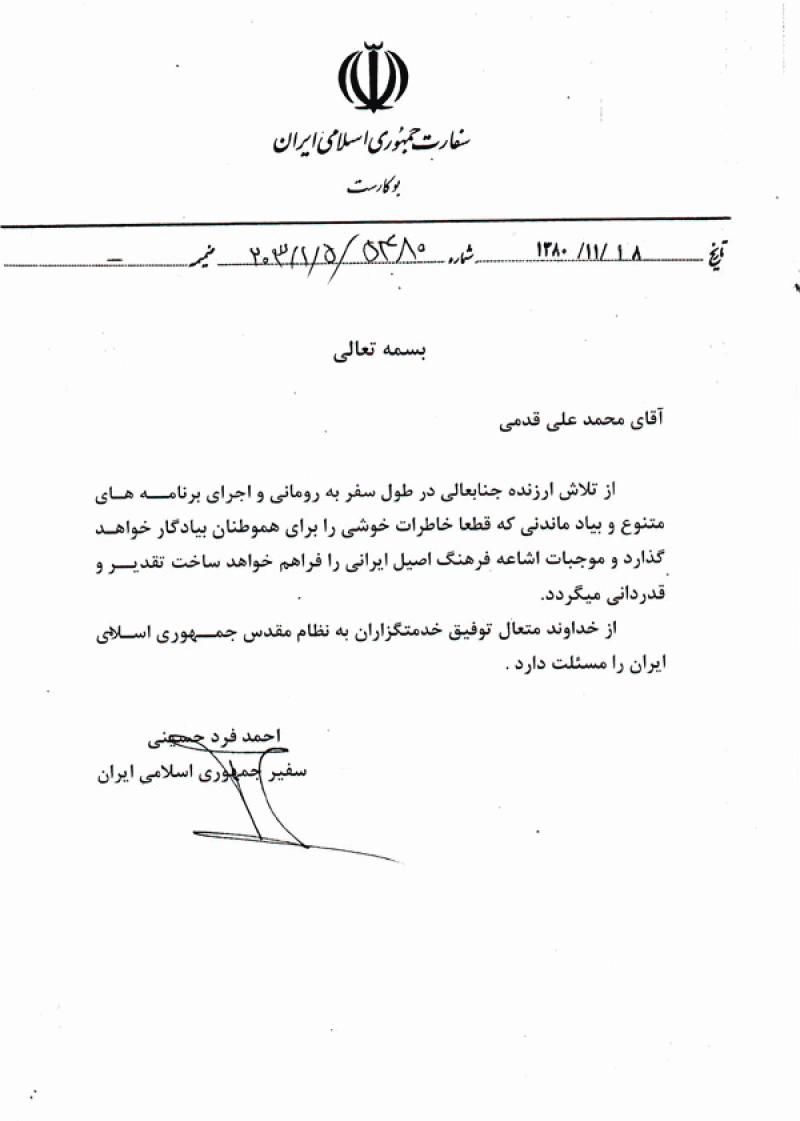 سفارت جمهوری اسلامی ایران
بوکارست
تاریخ ۱۳۸۰/۱۱/۱۸ شماره ۲۰۳/۱/۵/۵۴۸۰ ضمیمه —
بسمه تعالی
آقای محمد علی قدمی
از تلاش ارزنده جنابعالی در طول سفر به رومانی و اجرای برنامه های
متنوع و بیاد ماندنی که قطعا خاطرات خوشی را برای هموطنان بیادگار خواهد
گذارد و موجبات اشاعه فرهنگ اصیل ایرانی را فراهم خواهد ساخت تقدیر و
قدردانی میگردد.
از خداوند متعال توفیق خدمتگزاران به نظام مقدس جمهوری اسلامی
ایران را مسئلت دارد .
احمد فرد حسینی
سفیر جمهوری اسلامی ایران